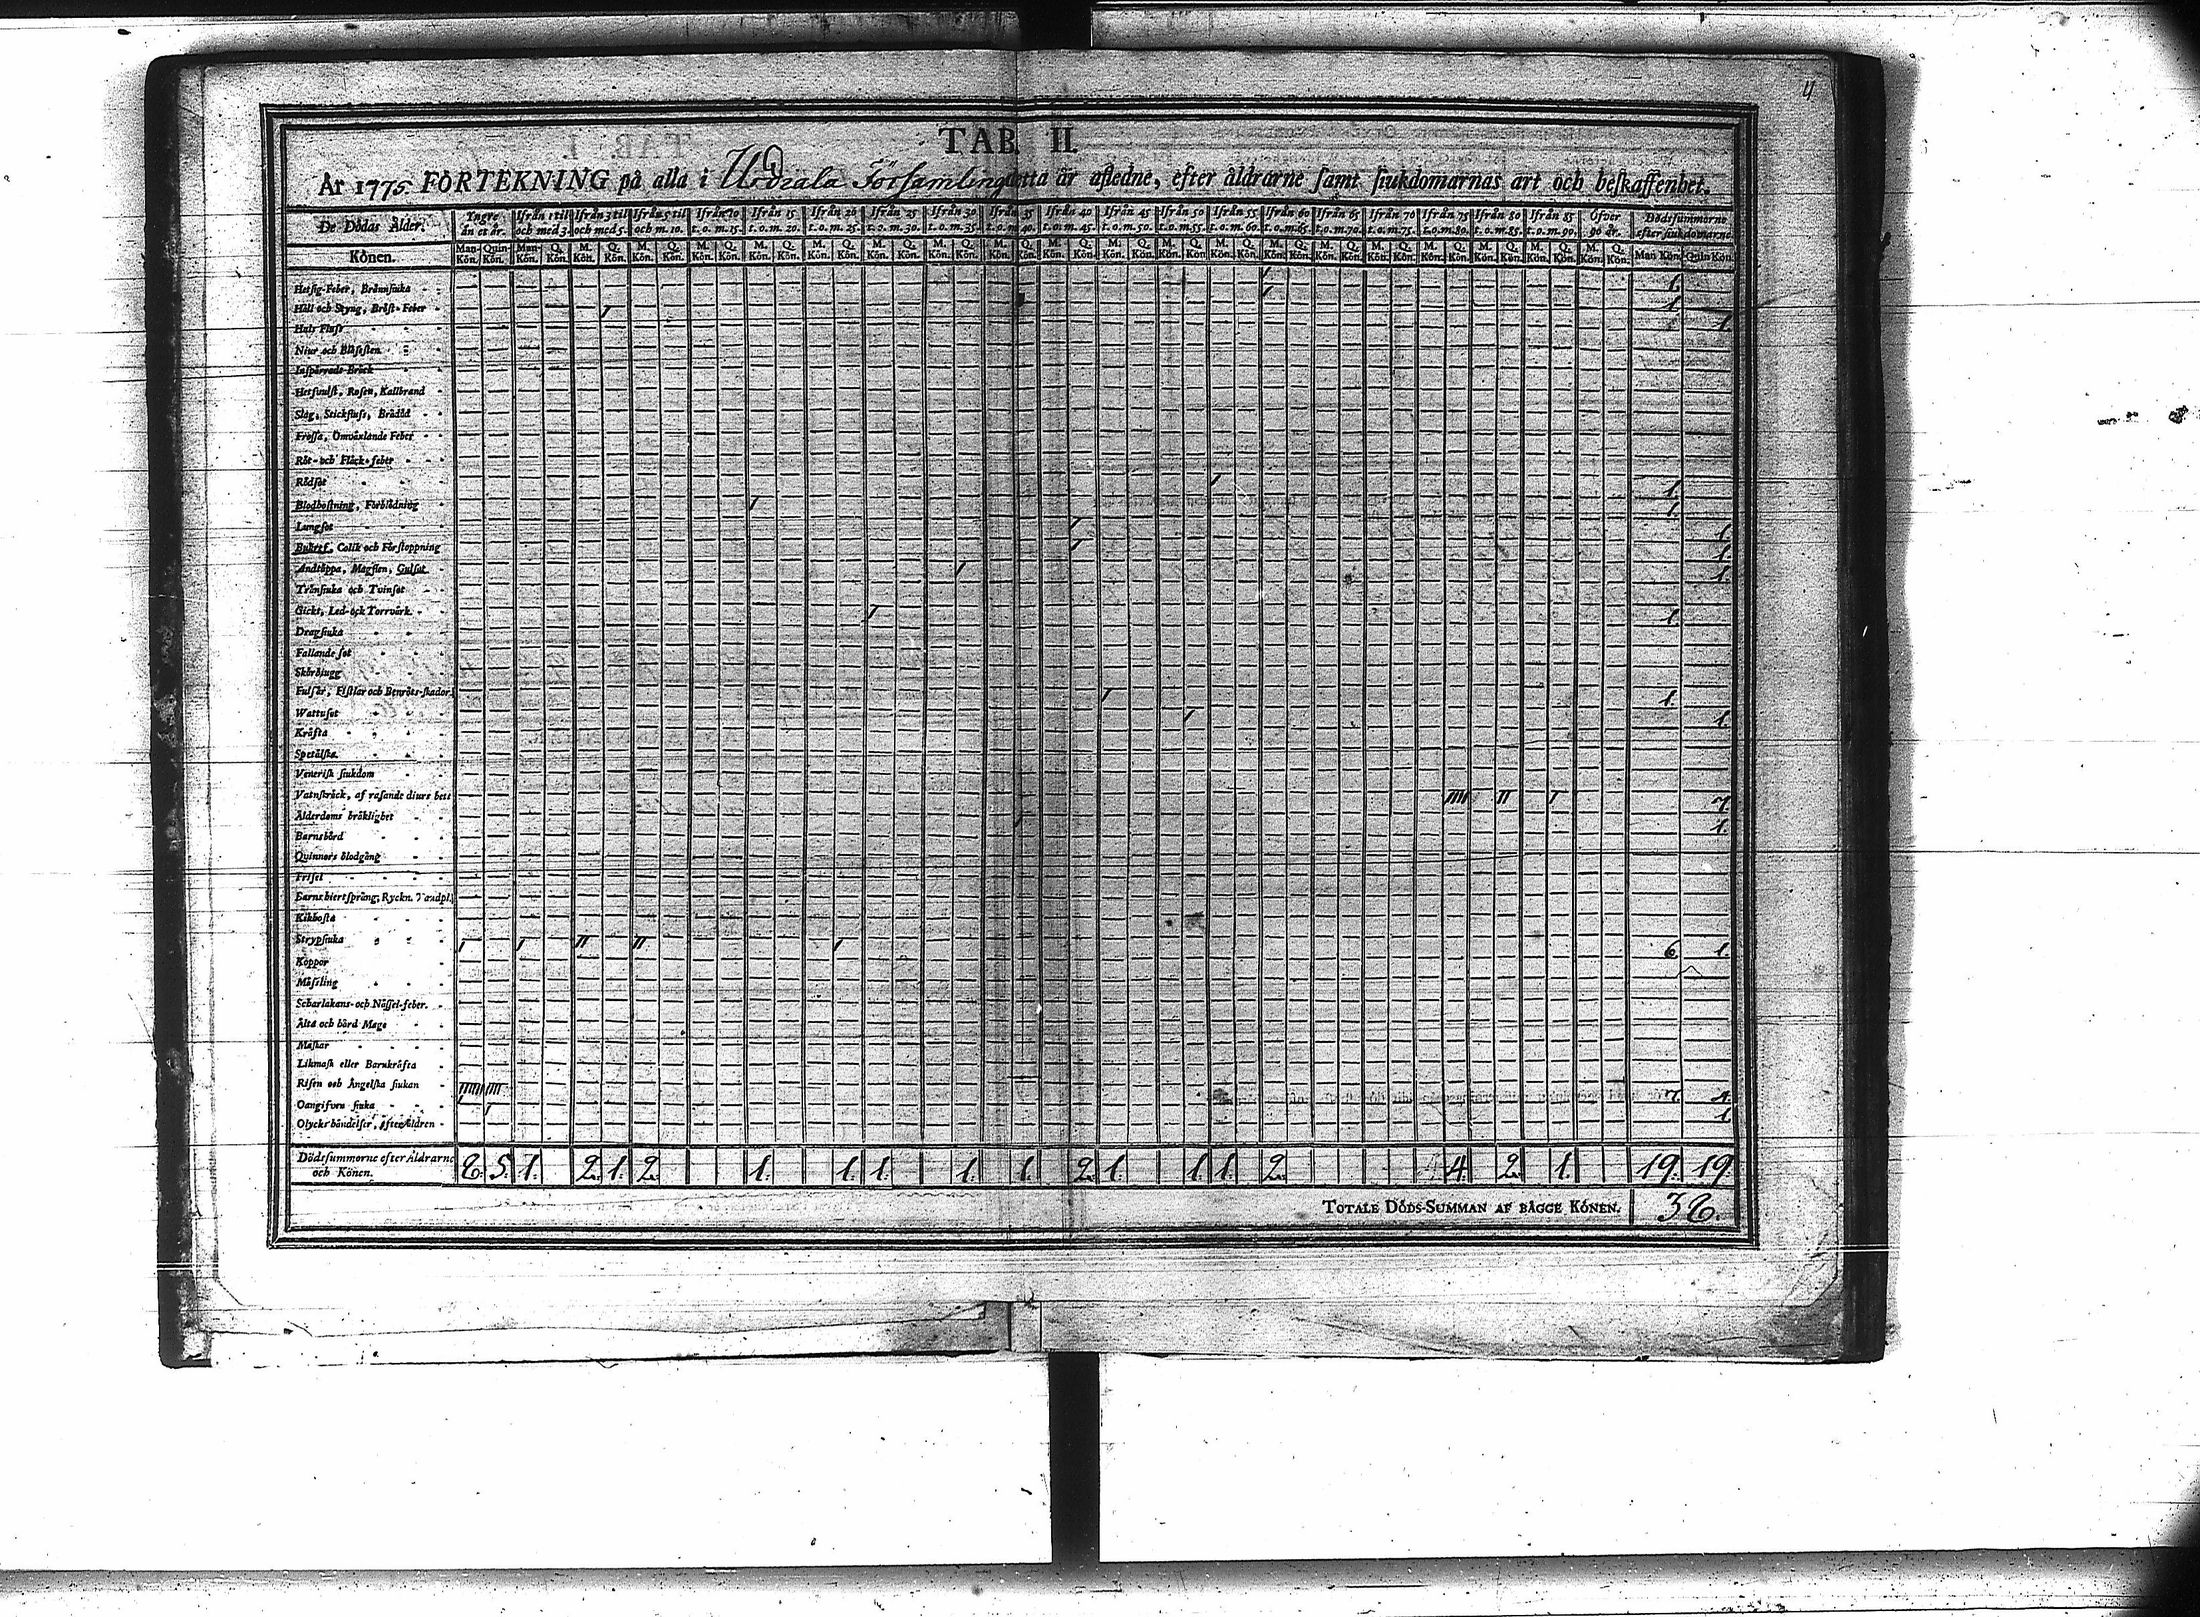 4
TAB. II.
År 1775 FÖRTEKNING på alla i Urdiala Församling detta år aflednе, efter åldrarne samt siukdomarnas art och beskaffenhet.
De Dödas Ålder. Yngre än et år. Ifrån 1 til och med 3. Ifrån 3 til och med 5. Ifrån 5 til och m. 10. Ifrån 10 t. o. m. 15. Ifrån 15 t. o. m. 20. Ifrån 20 t. o. m. 25. Ifrån 25 t. o. m. 30. Ifrån 30 t. o. m. 35. Ifrån 35 t. o. m. 40. Ifrån 40 t. o. m. 45. Ifrån 45 t. o. m. 50. Ifrån 50 t. o. m. 55. Ifrån 55 t. o. m. 60. Ifrån 60 t. o. m. 65. Ifrån 65 t. o. m. 70. Ifrån 70 t. o. m. 75. Ifrån 75 t. o. m. 80. Ifrån 80 t. o. m. 85. Ifrån 85 t. o. m. 90. Öfver 90 år. Dödssummorne efter siukdomarne
Könen. Man-Kön. Quin-Kön. Man-Kön. Q. Kön. M. Kön. Q. Kön. M. Kön. Q. Kön. M. Kön. Q. Kön. M. Kön. Q. Kön. M. Kön. Q. Kön. M. Kön. Q. Kön. M. Kön. Q. Kön. M. Kön. Q. Kön. M. Kön. Q. Kön. M. Kön. Q. Kön. M. Kön. Q. Kön. M. Kön. Q. Kön. M. Kön. Q. Kön. M. Kön. Q. Kön. M. Kön. Q. Kön. M. Kön. Q. Kön. M. Kön. Q. Kön. M. Kön. Q. Kön. M. Kön. Q. Kön. Man Kön. Quin Kön.
Hetsig-Feber, Brännsiuka 1.
Håll och Styng, Bröst-Feber 1.
Hals Fluss 1.
Niur och Blåsesten
Inspärrade Bråck
Hetsvulst, Rosen, Kallbrand
Slag, Stickfluss, Brådöd
Frossa, Omväxlande Feber
Röt- och Fläck-feber
Rödsot 1.
Blodhostning, Förblödning 1.
Lungsot 1.
Bukref, Colik och Förstoppning 1.
Andtäppa, Magsten, Gulsot 1.
Trånsiuka och Tvinsot
Gickt, Led- och Torrvärk 1.
Dragsiuka
Fallande sot
Skörbiugg
Fulsår, Fistlar och Benröts-skador 1.
Wattusot 1.
Kräfta
Spetälska
Venerisk siukdom
Vatnskräck, af rasande diurs bett 7.
Ålderdoms bräklighet 1.
Barnsbörd
Quinnors blodgång
Frisel
Barns hiertsprång, Ryckn. Tandpl.
Kikhosta
Strypsiuka 6. 1.
Koppor
Mässling
Scharlakans- och Nässel-feber.
Älta och hård Mage
Maskar
Likmask eller Barnkräfta
Risen och Ängelska siukan 7. 4.
Oangifven siuka 1.
Olyckshändelser, efter Åldren
Dödssummorne efter Åldrarne 8. 5. 1. 2. 1. 2. 1. 1. 1. 1. 1. 2. 1. 1. 1. 2. 4. 2. 1. 19. 19.
och Könen.
TOTALE DÖDS-SUMMAN AF BÄGGE KÖNEN. 38.